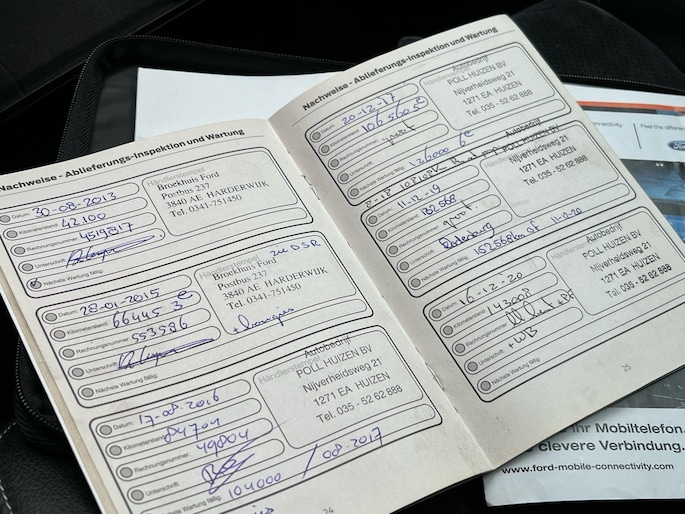 Nachweise - Ablieferungs-Inspektion und Wartung
Datum: 30-08-2013
Kilometerstand: 42100
Rechnungsnummer: 4519817
Unterschrift:
Nächste Wartung fällig:
Händlerstempel
Broekhuis Ford
Postbus 237
3840 AE HARDERWIJK
Tel. 0341-751450
Datum: 28-01-2015
Kilometerstand: 66445 3e
Rechnungsnummer: 553586
Unterschrift:
Nächste Wartung fällig:
Händlerstempel
Broekhuis Ford
Postbus 237
3840 AE HARDERWIJK
Tel. 0341-751450
Datum: 17-08-2016
Kilometerstand: 84701
Rechnungsnummer: 49804
Unterschrift:
Nächste Wartung fällig: 104000 / 08-2017
Händlerstempel
Autobedrijf
POLL HUIZEN BV
Nijverheidsweg 21
1271 EA HUIZEN
Tel. 035 - 52 62 888
24
Nachweise - Ablieferungs-Inspektion und Wartung
Datum: 20-12-17
Kilometerstand: 106560 5e
Rechnungsnummer:
Unterschrift:
Nächste Wartung fällig: 126000 6e
Händlerstempel
Autobedrijf
POLL HUIZEN BV
Nijverheidsweg 21
1271 EA HUIZEN
Tel. 035 - 52 62 888
Datum: 11-12-19
Kilometerstand: 132568
Rechnungsnummer:
Unterschrift:
Nächste Wartung fällig: 152568km of 11-12-20
Autobedrijf
POLL HUIZEN BV
Nijverheidsweg 21
1271 EA HUIZEN
Tel. 035 - 52 62 888
Datum: 16-12-20
Kilometerstand: 143008
Rechnungsnummer:
Unterschrift:
Nächste Wartung fällig:
Händlerstempel
Autobedrijf
POLL HUIZEN BV
Nijverheidsweg 21
1271 EA HUIZEN
Tel. 035 - 52 62 888
25
Feel the
Ihr Mobiltelefon.
clevere Verbindung.
www.ford-mobile-connectivity.com